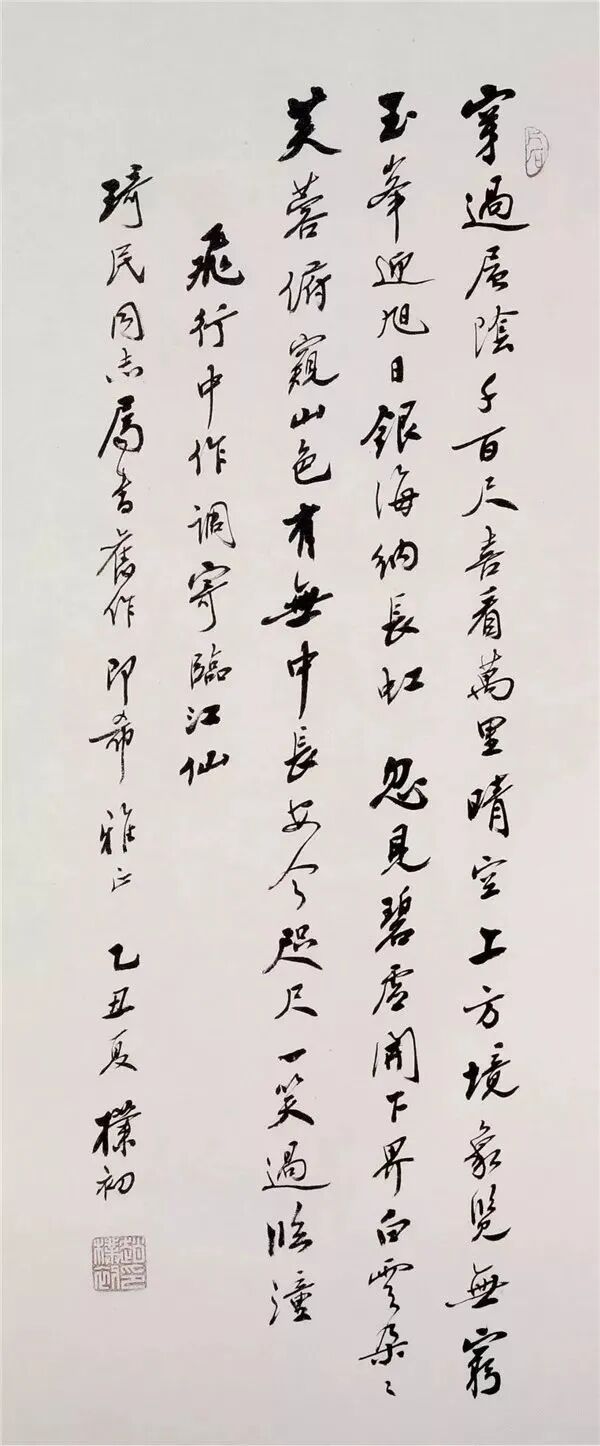 穿過層陰千百尺喜看萬里晴空上方境象覽無窮
玉峯迎旭日銀海納長虹 忽見碧虛開下界白雲朵〻
芙蓉俯窺山色有無中長安今咫尺一笑過臨潼
飛行中作調寄臨江仙
琦民同志屬書舊作即希 雅正 乙丑夏 樸初
趙樸初印